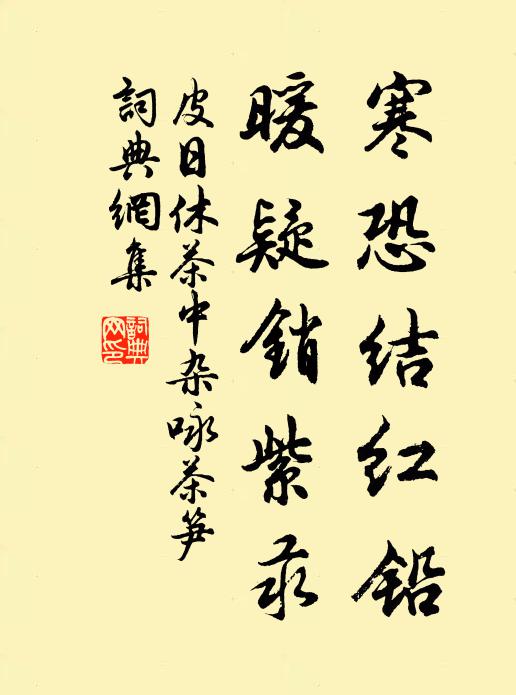 寒恐结红铅
暖疑銷紫汞
皮日休茶中杂咏茶笋
詞典網集
詞典网印